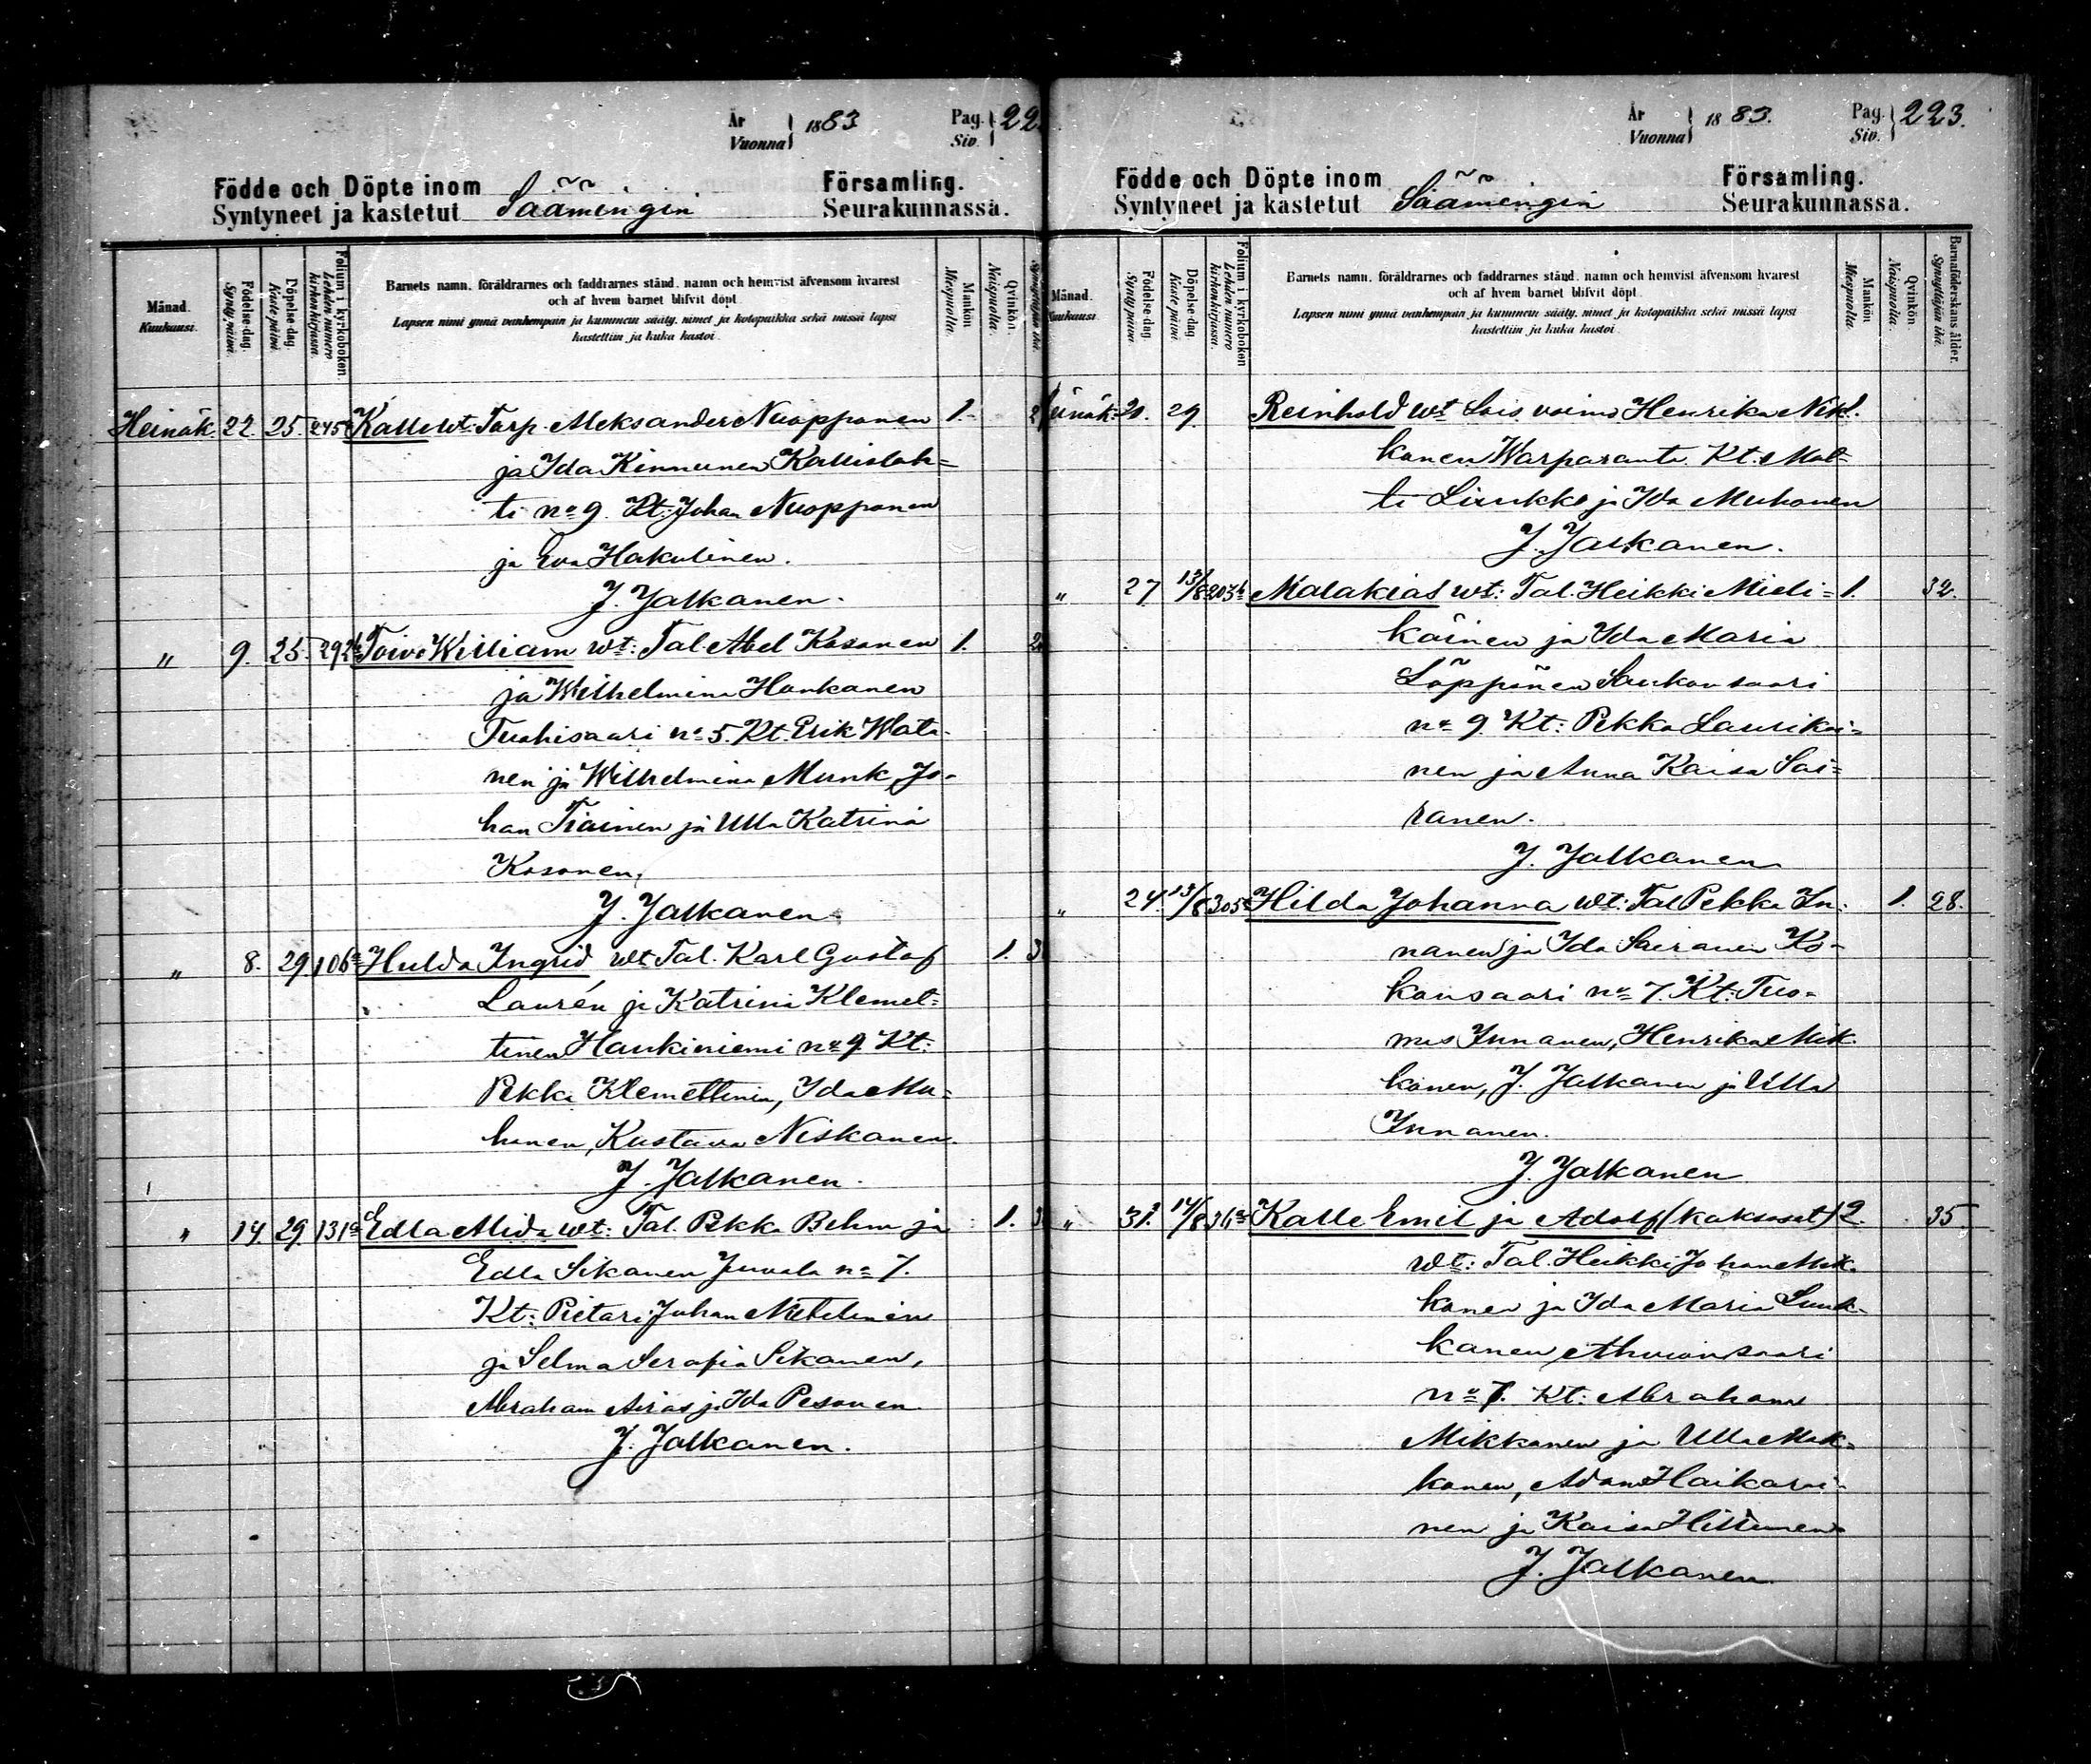 År
Vuonna } 1883
Pag.
Siv. } 22
Födde och Döpte inom
Syntyneet ja kastetut Säämingin
Församling.
Seurakunnassa.
Månad. Kuukausi.
Födelse-dag. Syntymäpäivä.
Döpelse-dag. Kaste päivä.
Folium i kyrkoboken. Lehden numero kirkonkirjassa.
Barnets namn, föräldrarnes och faddrarnes stånd, namn och hemvist äfvensom hvarest
och af hvem barnet blifvit döpt.
Lapsen nimi ynnä vanhempain ja kummein sääty, nimet ja kotopaikka sekä missä lapsi
kastettiin ja kuka kastoi.
Mankön. Miespuolta.
Qvinkön. Naispuolta.
Heinäk. 22. 25. 245 Kalle wt: Torp. Aleksander Nuopponen 1. 2
ja Ida Kinnunen Kallislah=
ti no 9. Kt: Johan Nuopponen
ja Eva Hakulinen.
J. Jalkanen.
" 9. 25. 292 Toivo William wt: Tal. Abel Kosonen 1. 2
ja Wilhelmina Honkanen
Tuohisaari no 5. Kt. Erik Wata-
nen ja Wilhelmina Munk, Jo-
han Tiainen ja Ulla Katrina
Kosonen.
J. Jalkanen
" 8. 29. 106 Hulda Ingrid wt Tal. Karl Gustaf 1. 3
Laurén ja Katrina Klemet=
tinen Haukiniemi no 9. Kt:
Pekka Klemettinen, Ida Mu=
honen, Kustava Niskanen.
J. Jalkanen.
" 14. 29. 131 Edla Alida wt: Tal. Pekka Behm ja 1. 3
Edla Sikanen Juvola no 7.
Kt: Pietari Juhan
ja Selma Serafia Sikanen,
Abraham Airas ja Ida Pesonen.
J. Jalkanen.
År
Vuonna } 1883.
Pag.
Siv. } 223.
Födde och Döpte inom
Syntyneet ja kastetut Säämingin
Församling.
Seurakunnassa.
Månad. Kuukausi.
Födelse-dag. Syntymäpäivä.
Döpelse-dag. Kaste päivä.
Folium i kyrkoboken. Lehden numero kirkonkirjassa.
Barnets namn, föräldrarnes och faddrarnes stånd, namn och hemvist äfvensom hvarest
och af hvem barnet blifvit döpt.
Lapsen nimi ynnä vanhempain ja kummein sääty, nimet ja kotopaikka sekä missä lapsi
kastettiin ja kuka kastoi.
Mankön. Miespuolta.
Qvinkön. Naispuolta.
Barnaföderskans ålder. Synnyttäjän ikä.
einäk: 20. 29. Reinhold wt Lois vaimo Henrika 1.
konen Warparanta. Kt: Mat=
ti Liukko ja Ida Muhonen
J. Jalkanen.
" 27. 13/8 203 Malakias wt: Tal. Heikki Mieli= 1. 32.
käinen ja Ida Maria
Löppönen Saukonsaari
no 9. Kt: Pekka Laurikai=
nen ja Anna Kaisa Sai=
ranen.
J. Jalkanen
" 24. 13/8 305 Hilda Johanna wt: Tal Pekka In- 1. 28.
nanen ja Ida Sairanen Ko-
konsaari no 7. Kt: Tuo-
mas Innanen, Henrika Mik-
konen, J. Jalkanen ja Ulla
Innanen.
J. Jalkanen
" 31. 14/8 Kalle Emil ja Adolf (kaksoset) 2. 35.
wt: Tal. Heikki Johan Mik-
konen ja Ida Maria
kanen Ahvionsaari
no 7. Kt: Abraham
Mikkonen ja Ulla Mik-
konen, Adam Haikarai-
nen ja Kaisa
J. Jalkanen